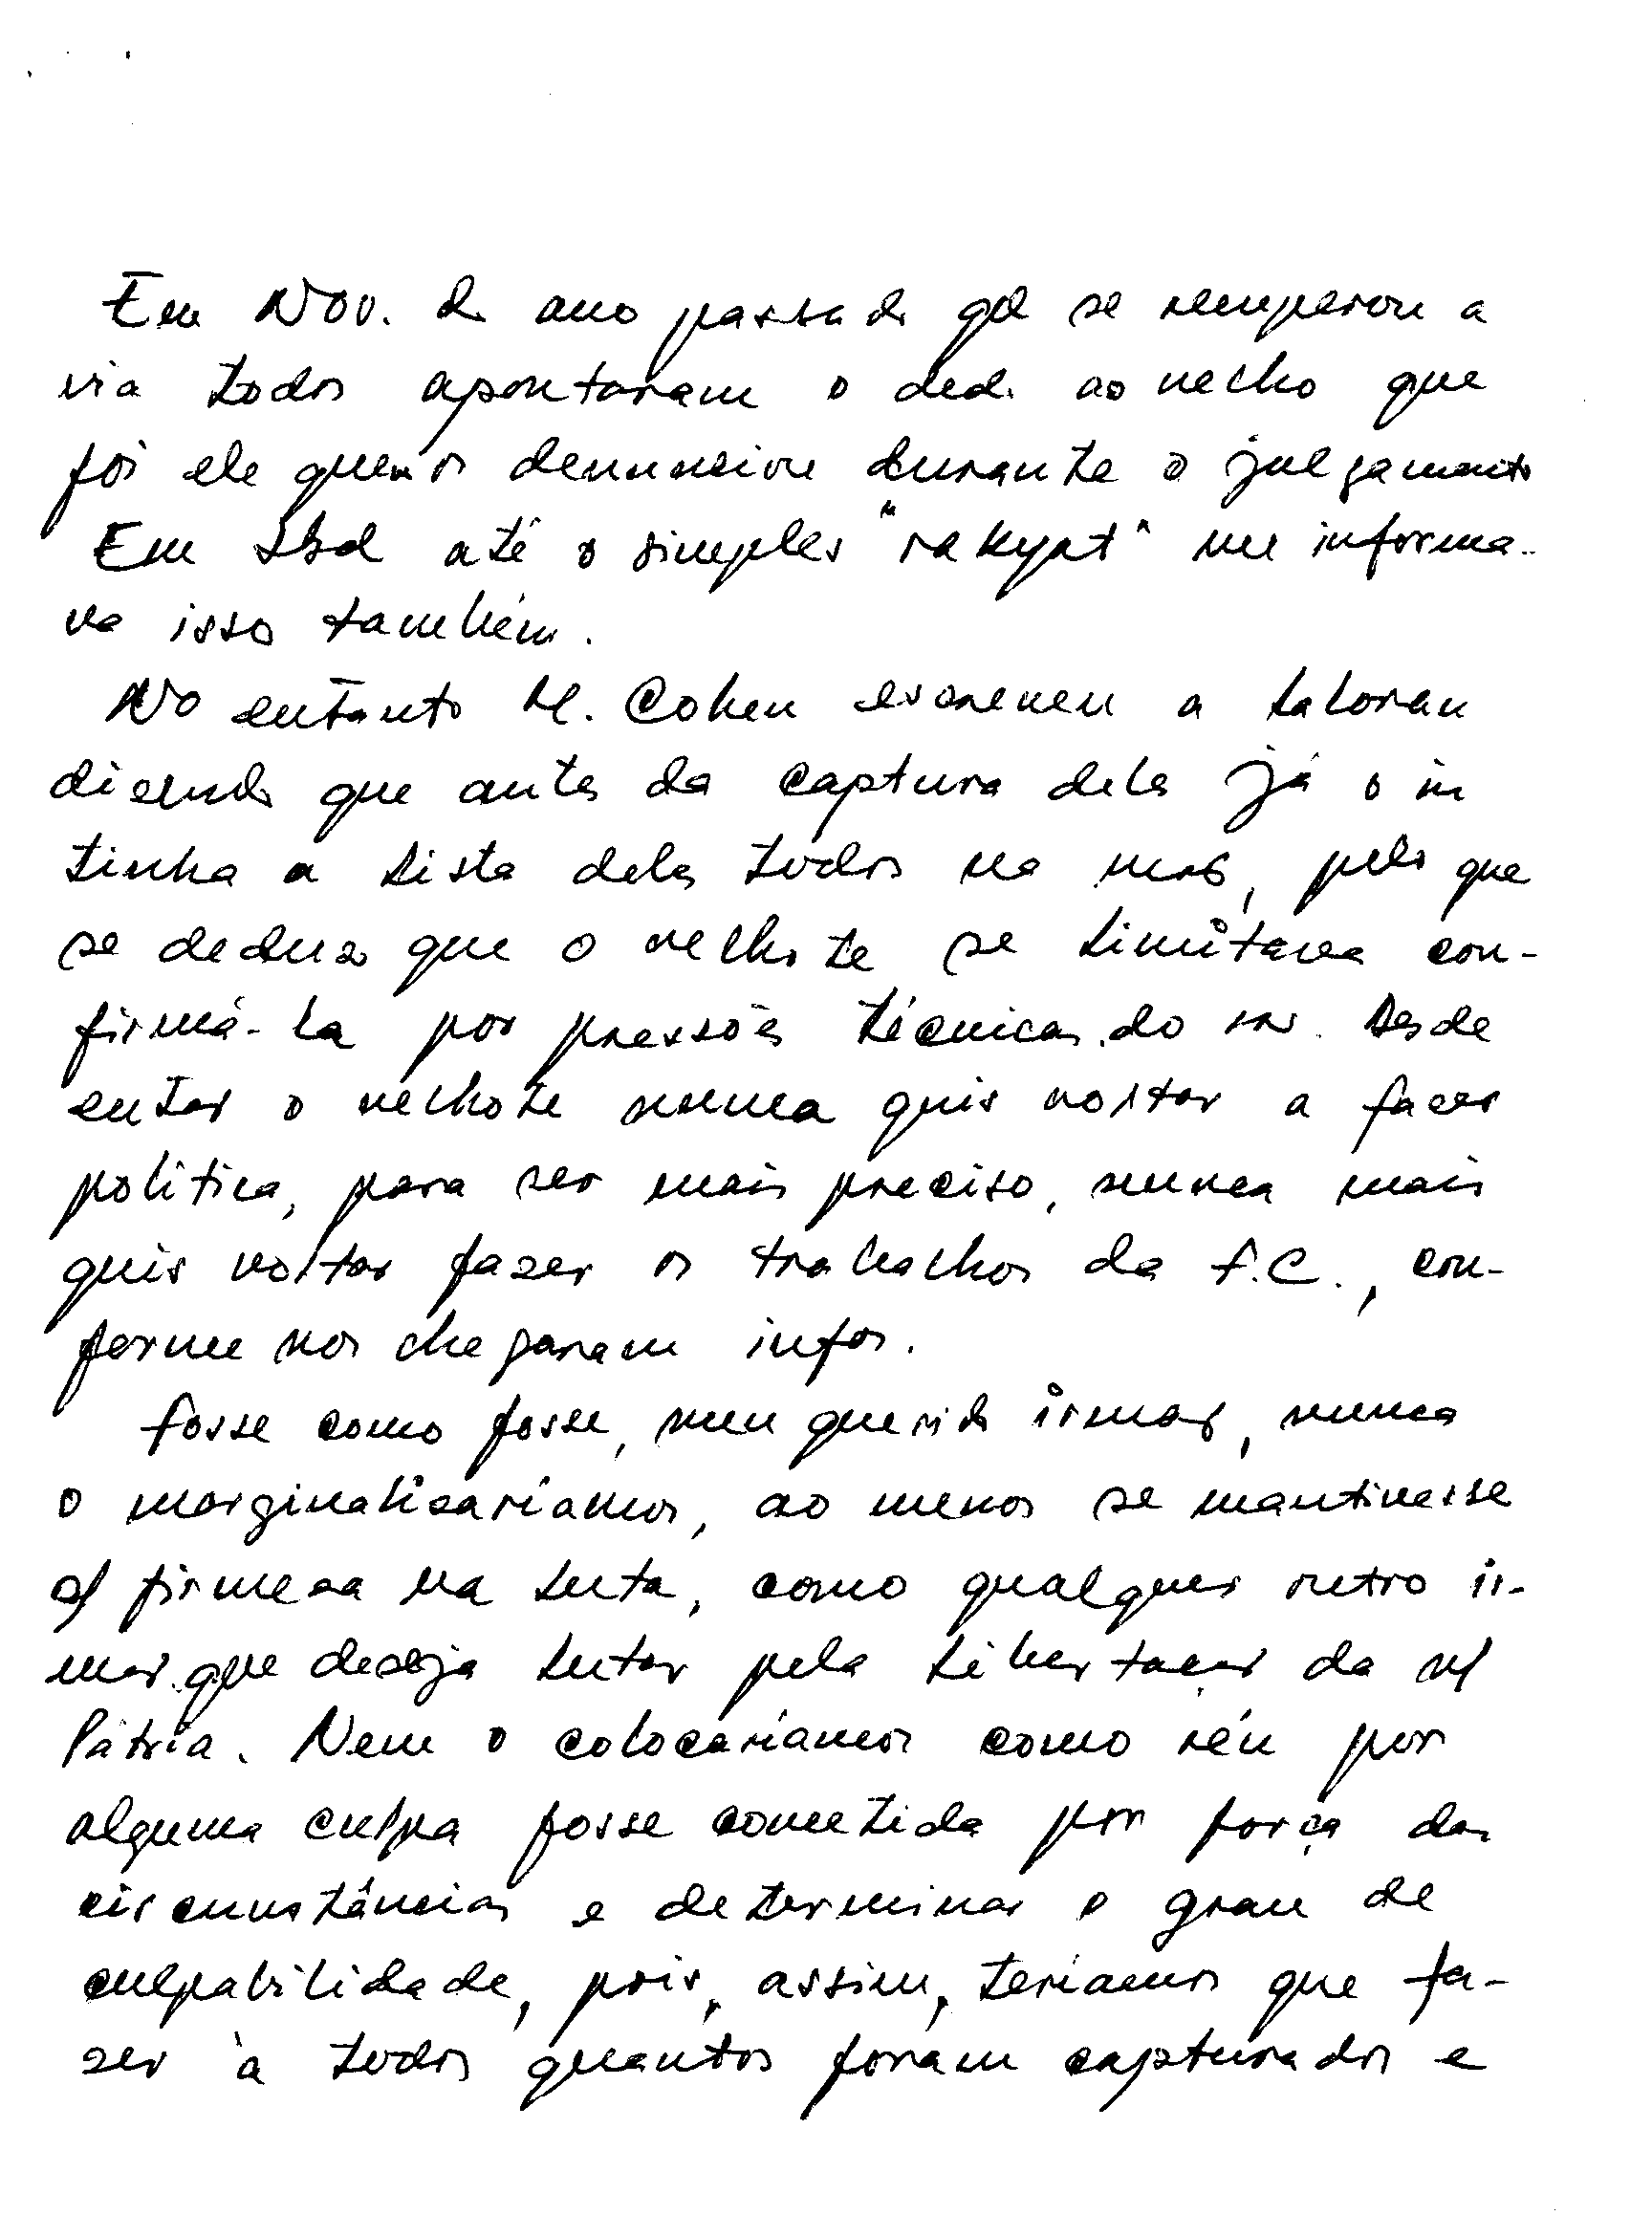 Em Nov. do ano passado qd se recuperou a
via todos apontaram o dedo ao velho que
foi ele quem os denunciou durante o julgamento
Em Lbd até o simples "rakyat" me informa-
va isso também.
No entanto M. Cohen escreveu a Laloran
dizendo que antes da captura deles já o in
tinha a lista deles todos na mão, pelo que
se deduz que o velhote se limitava con-
firmá-la por pressões técnicas do in. Desde
então o velhote nunca quis voltar a fazer
política, para ser mais preciso, nunca mais
quis voltar fazer os trabalhos da F.C., con-
forme nos chegaram infos.
Fosse como fosse, meu querido irmão, nunca
o marginalizaríamos, ao menos se mantivesse
c/ firmeza na luta, como qualquer outro ir-
mão que deseja lutar pela libertação da n/
Pátria. Nem o colocaríamos como réu por
alguma culpa fosse cometida por força das
circunstâncias e determinar o grau de
culpabilidade, pois, assim, teríamos que fa-
zer à todos quantos foram capturados e